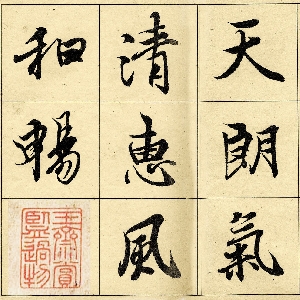 天朗氣
清惠風
和暢